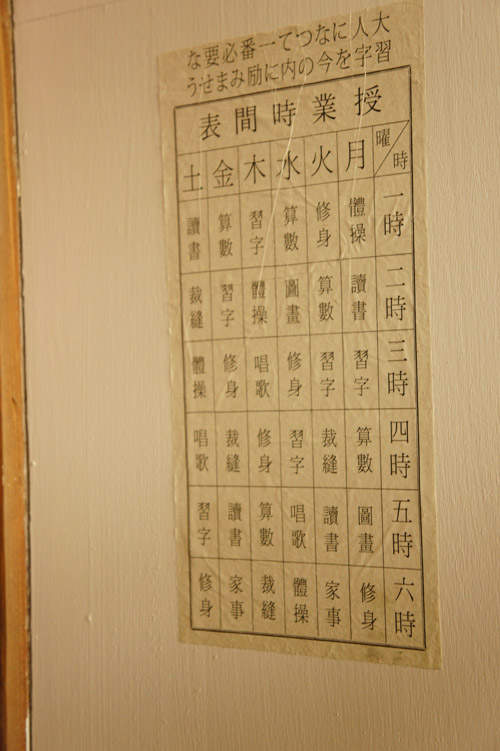 大人になつて一番必要な
習字を今の内に励みませう
授業時間表
曜時 月 火 水 木 金 土
一時 體操 修身 算數 習字 算數 讀書
二時 讀書 算數 圖畫 體操 習字 裁縫
三時 習字 習字 修身 唱歌 修身 體操
四時 算數 裁縫 習字 修身 裁縫 唱歌
五時 圖畫 讀書 唱歌 算數 讀書 習字
六時 修身 家事 體操 裁縫 家事 修身